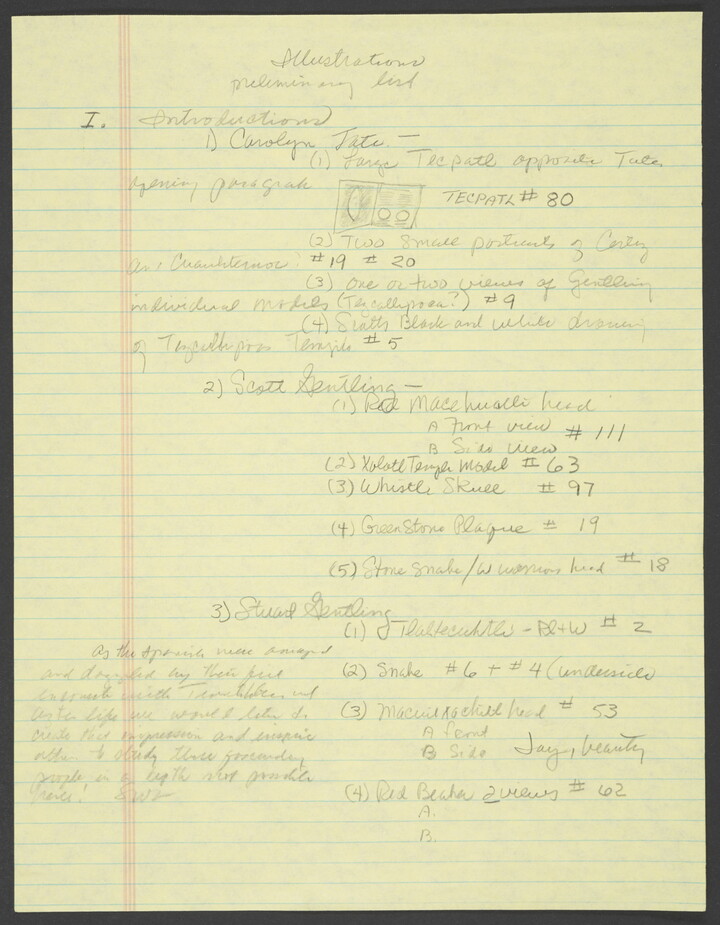 Illustrations
preliminary list
I. Introductions
1) Carolyn Tate —
(1) Large Tecpatl opposite Tates
opening paragraph
TECPATL # 80
(2) Two small portraits of Cortez
and Cuauhtemoc # 19 # 20
(3) one or two views of Gentling
individual models ( ?) # 9
(4) Scotts Black and white drawing
of Temple # 5
2) Scott Gentling —
(1) Red head
A Front view # 111
B Side view
(2) Xolotl Temple Model # 63
(3) Whistle Skull # 97
(4) Green Stone Plaque # 19
(5) Stone snake /W warriors head # 18
3) Stuart Gentling
(1) Tlaltecuhtli - Bl+W # 2
As the Spanish were amazed
(2) Snake # 6 + # 4 (underside
and dazzled by their first
with
(3) head # 53
life we would like to
A front
create that impression and inspire
B Side Joy, beauty
others to study these
people in a depth not possible
(4) Red Beaker 2 views # 62
A.
B.